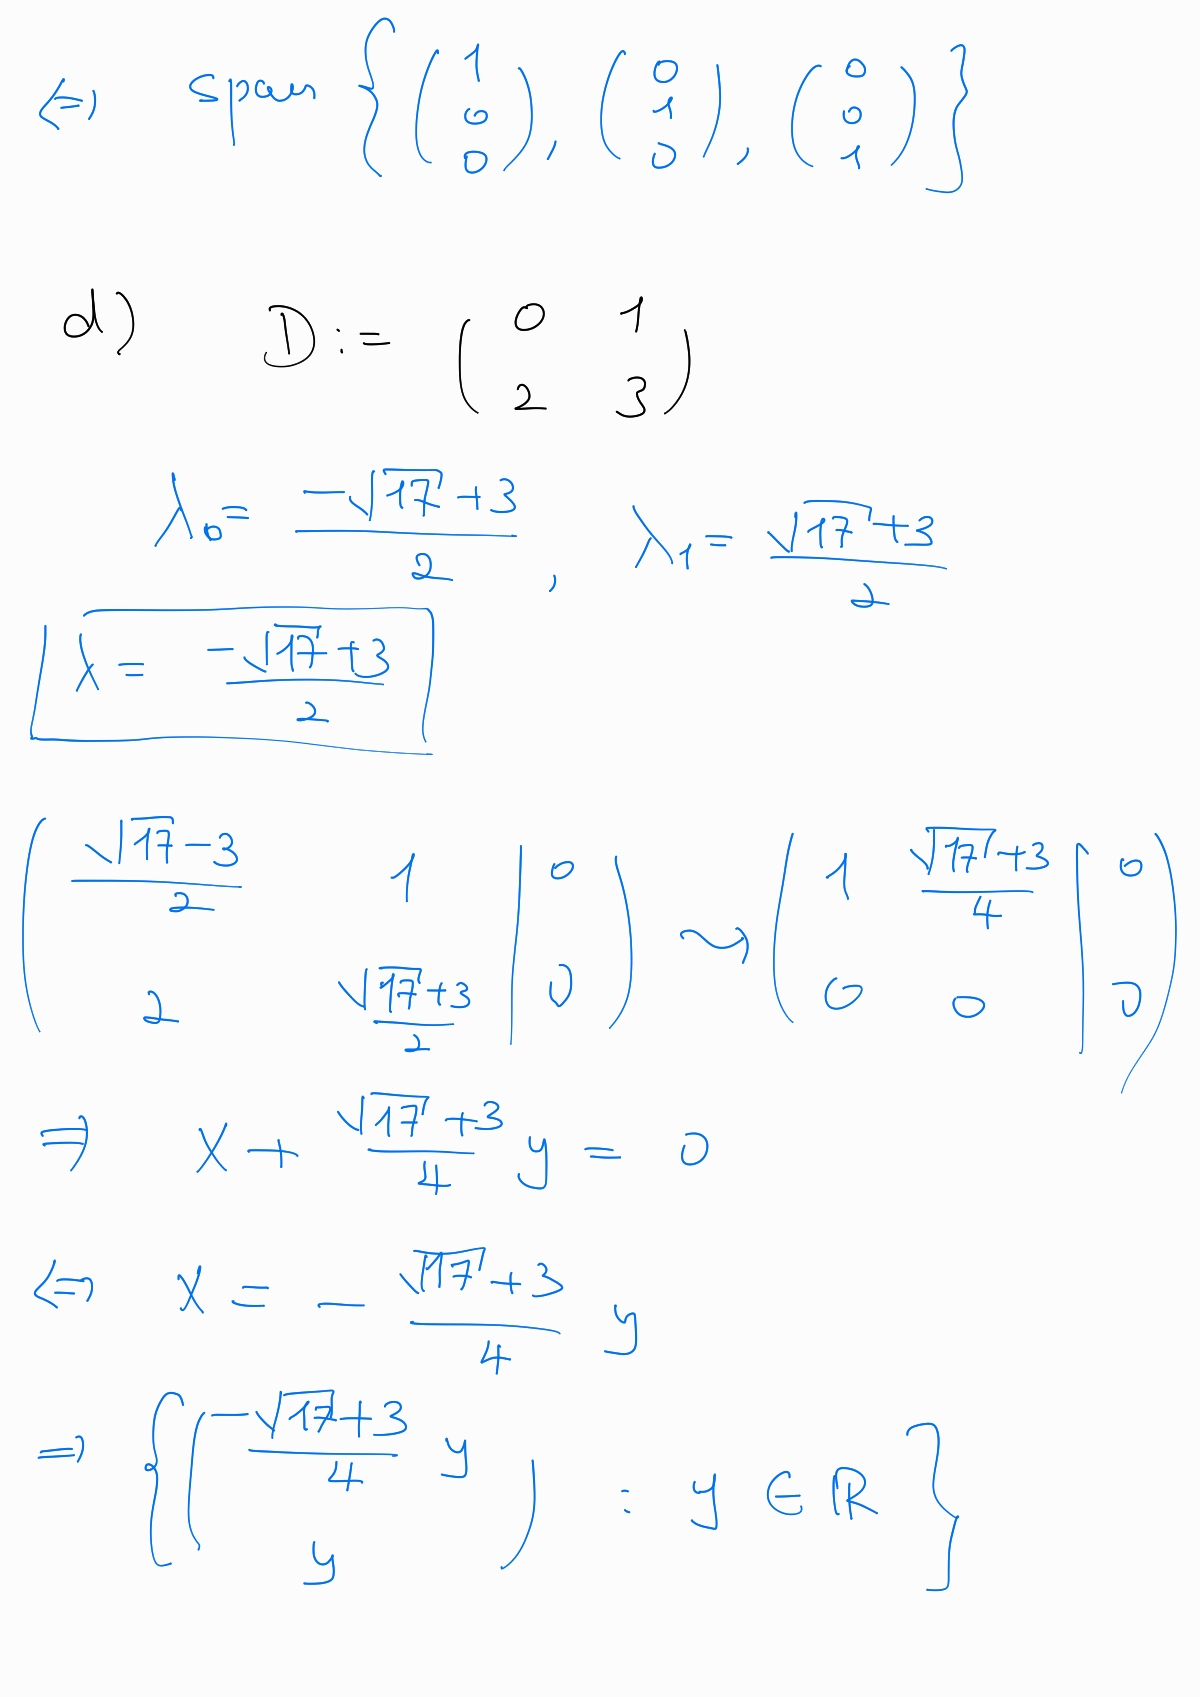 ⇔ span {(1 0 0), (0 1 0), (0 0 1)}
d) D := (0 1
2 3)
λ₀ = (-√17 + 3)/2, λ₁ = (√17 + 3)/2
λ = (-√17 + 3)/2
((√17 - 3)/2 1 | 0
2 (√17 + 3)/2 | 0) ⇝ (1 (√17 + 3)/4 | 0
0 0 | 0)
⇒ x + (√17 + 3)/4 y = 0
⇔ x = - (√17 + 3)/4 y
⇒ {((-√17 + 3)/4 y
y) : y ∈ ℝ}